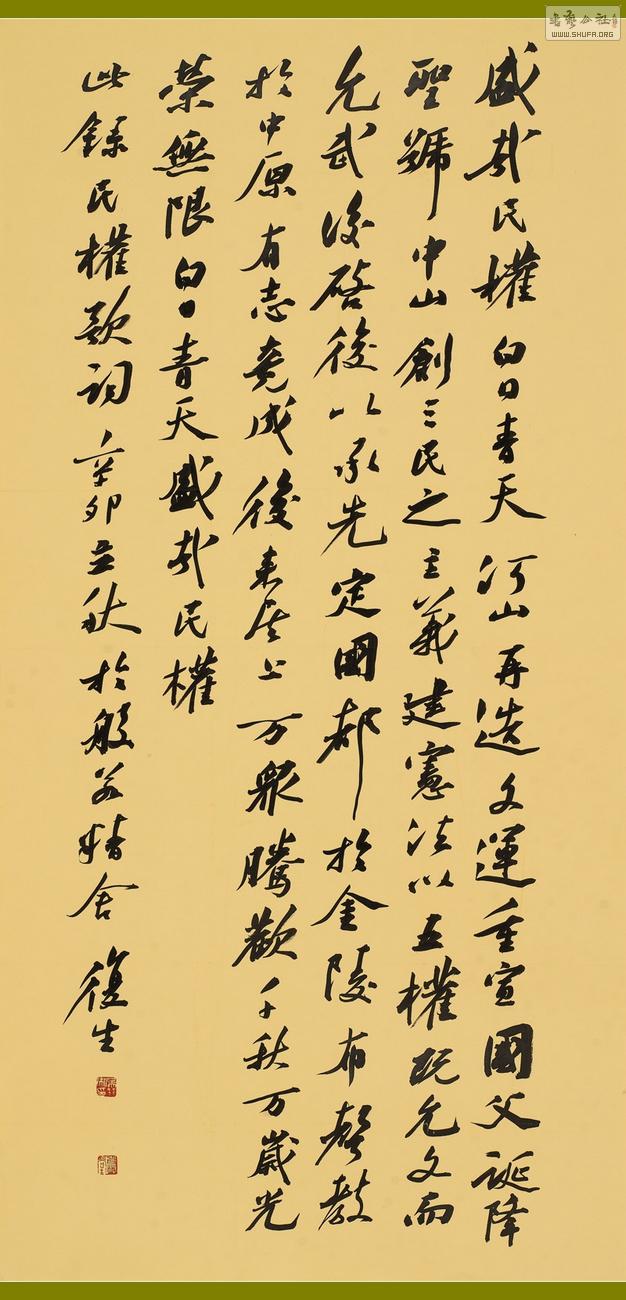 盛哉民權白日青天河山再造文運重宣國父誕降
聖號中山創三民之主義建憲法以五權既允文而
允武復啓後以承先定國都於金陵布聲教
於中原有志竟成後來居上万眾騰歡千秋万歲光
榮無限白日青天盛哉民權
此錄民權歌詞辛卯立秋於般若精舍 復生
書藝公社
WWW.SHUFA.ORG